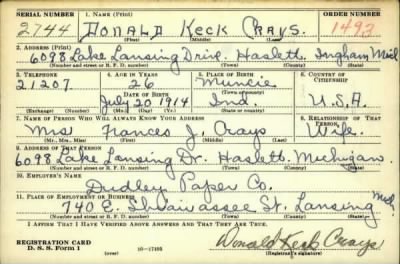 SERIAL NUMBER 1. NAME (Print) ORDER NUMBER
2744 DONALD KECK CRAYS. 1493
(First) (Middle) (Last)
2. ADDRESS (Print)
6098 Lake Lansing Drive. Haslett, Ingham Mich
(Number and street or R. F. D. number) (Town) (County) (State)
3. TELEPHONE 4. AGE IN YEARS 5. PLACE OF BIRTH 6. COUNTRY OF CITIZENSHIP
21207 26 Muncie
DATE OF BIRTH (Town or county)
July 20 1914 Ind. U.S.A.
(Exchange) (Number) (Mo.) (Day) (Yr.) (State or country)
7. NAME OF PERSON WHO WILL ALWAYS KNOW YOUR ADDRESS 8. RELATIONSHIP OF THAT PERSON
Mrs Frances J. Crays Wife.
(Mr., Mrs., Miss) (First) (Middle) (Last)
9. ADDRESS OF THAT PERSON
6098 Lake Lansing Dr. Haslett. Michigan.
(Number and street or R. F. D. number) (Town) (County) (State)
10. EMPLOYER'S NAME
Dudley Paper Co.
11. PLACE OF EMPLOYMENT OR BUSINESS
740 E. Shiawassee St. Lansing Mich.
(Number and street or R. F. D. number) (Town) (County) (State)
I AFFIRM THAT I HAVE VERIFIED ABOVE ANSWERS AND THAT THEY ARE TRUE.
REGISTRATION CARD
D. S. S. Form 1 (over) 16—17105 Donald Keck Crays
(Registrant's signature)